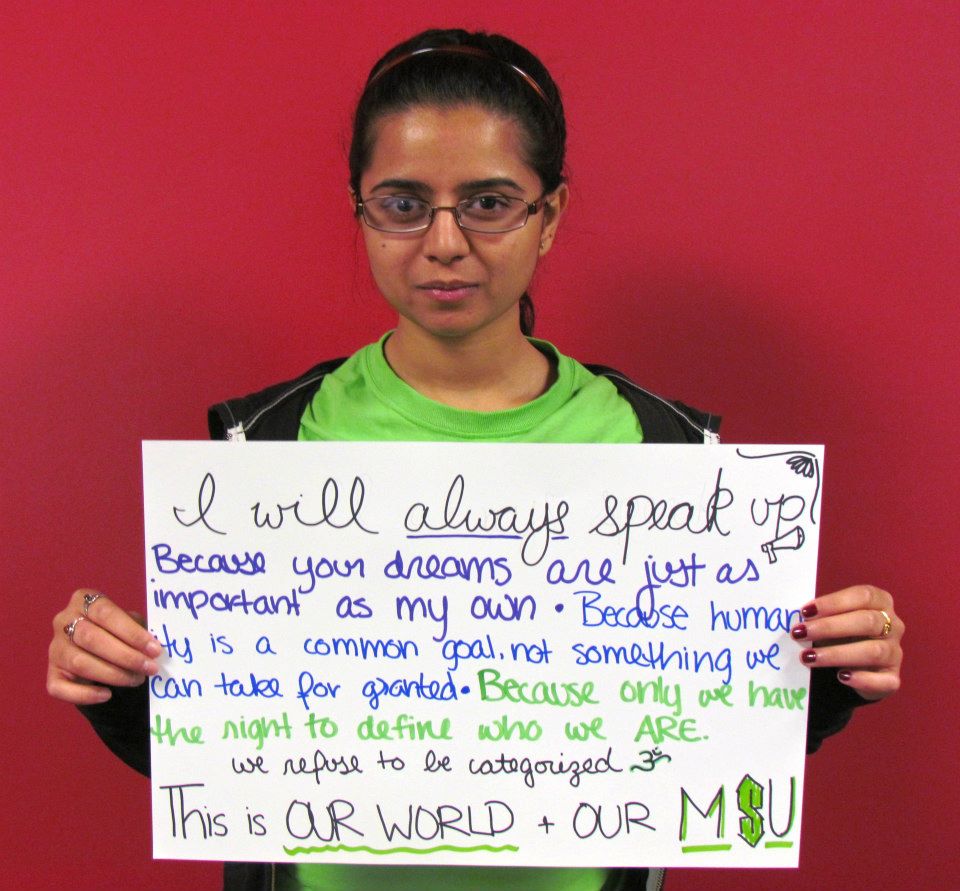 I will always speak up!
Because your dreams are just as
important as my own • Because human
ity is a common goal, not something we
can take for granted • Because only we have
the right to define who we ARE.
we refuse to be categorized ॐ
This is OUR WORLD + OUR MSU